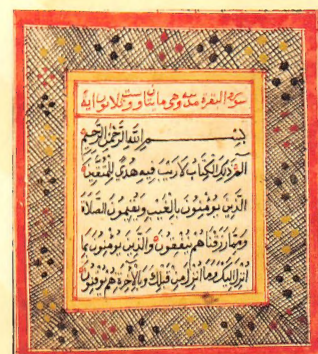 سورة البقرة مدنية وهي مايتان وست وثلاثون اية
بسم الله الرحمن الرحيم
الم ذلك الكتاب لا ريب فيه هدى للمتقين
الذين يومنون بالغيب ويقيمون الصلاة
ومما رزقناهم ينفقون والذين يومنون بما
انزل اليك وما انزل من قبلك وبالاخرة هم يوقنون